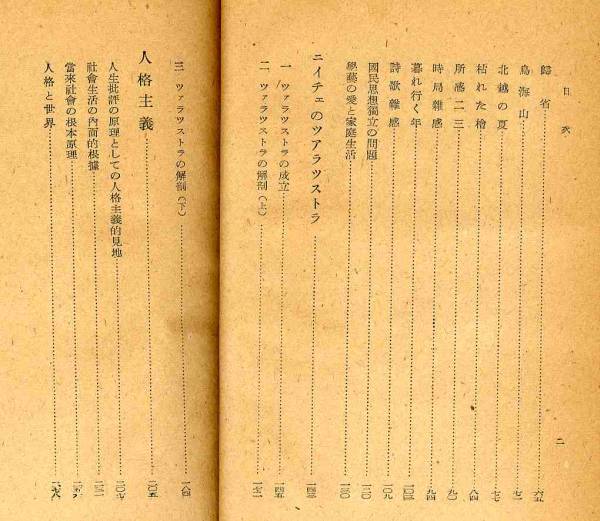 目次
二
歸省……六五
鳥海山……七一
北越の夏……七七
枯れた檜……八四
所感二三……九〇
時局雜感……九四
暮れ行く年……一〇三
詩歌雜感……一〇九
國民思想獨立の問題……一二〇
學藝の愛と家庭生活……一三〇
ニイチェのツアラツストラ……一四三
一 ツァラツストラの成立……一四五
二 ツァラツストラの解剖(上)……一七二
三 ツァラツストラの解剖(下)……一八四
人格主義……二〇五
人生批評の原理としての人格主義的見地……二〇七
社會生活の內面的根據
當來社會の根本原理
人格と世界